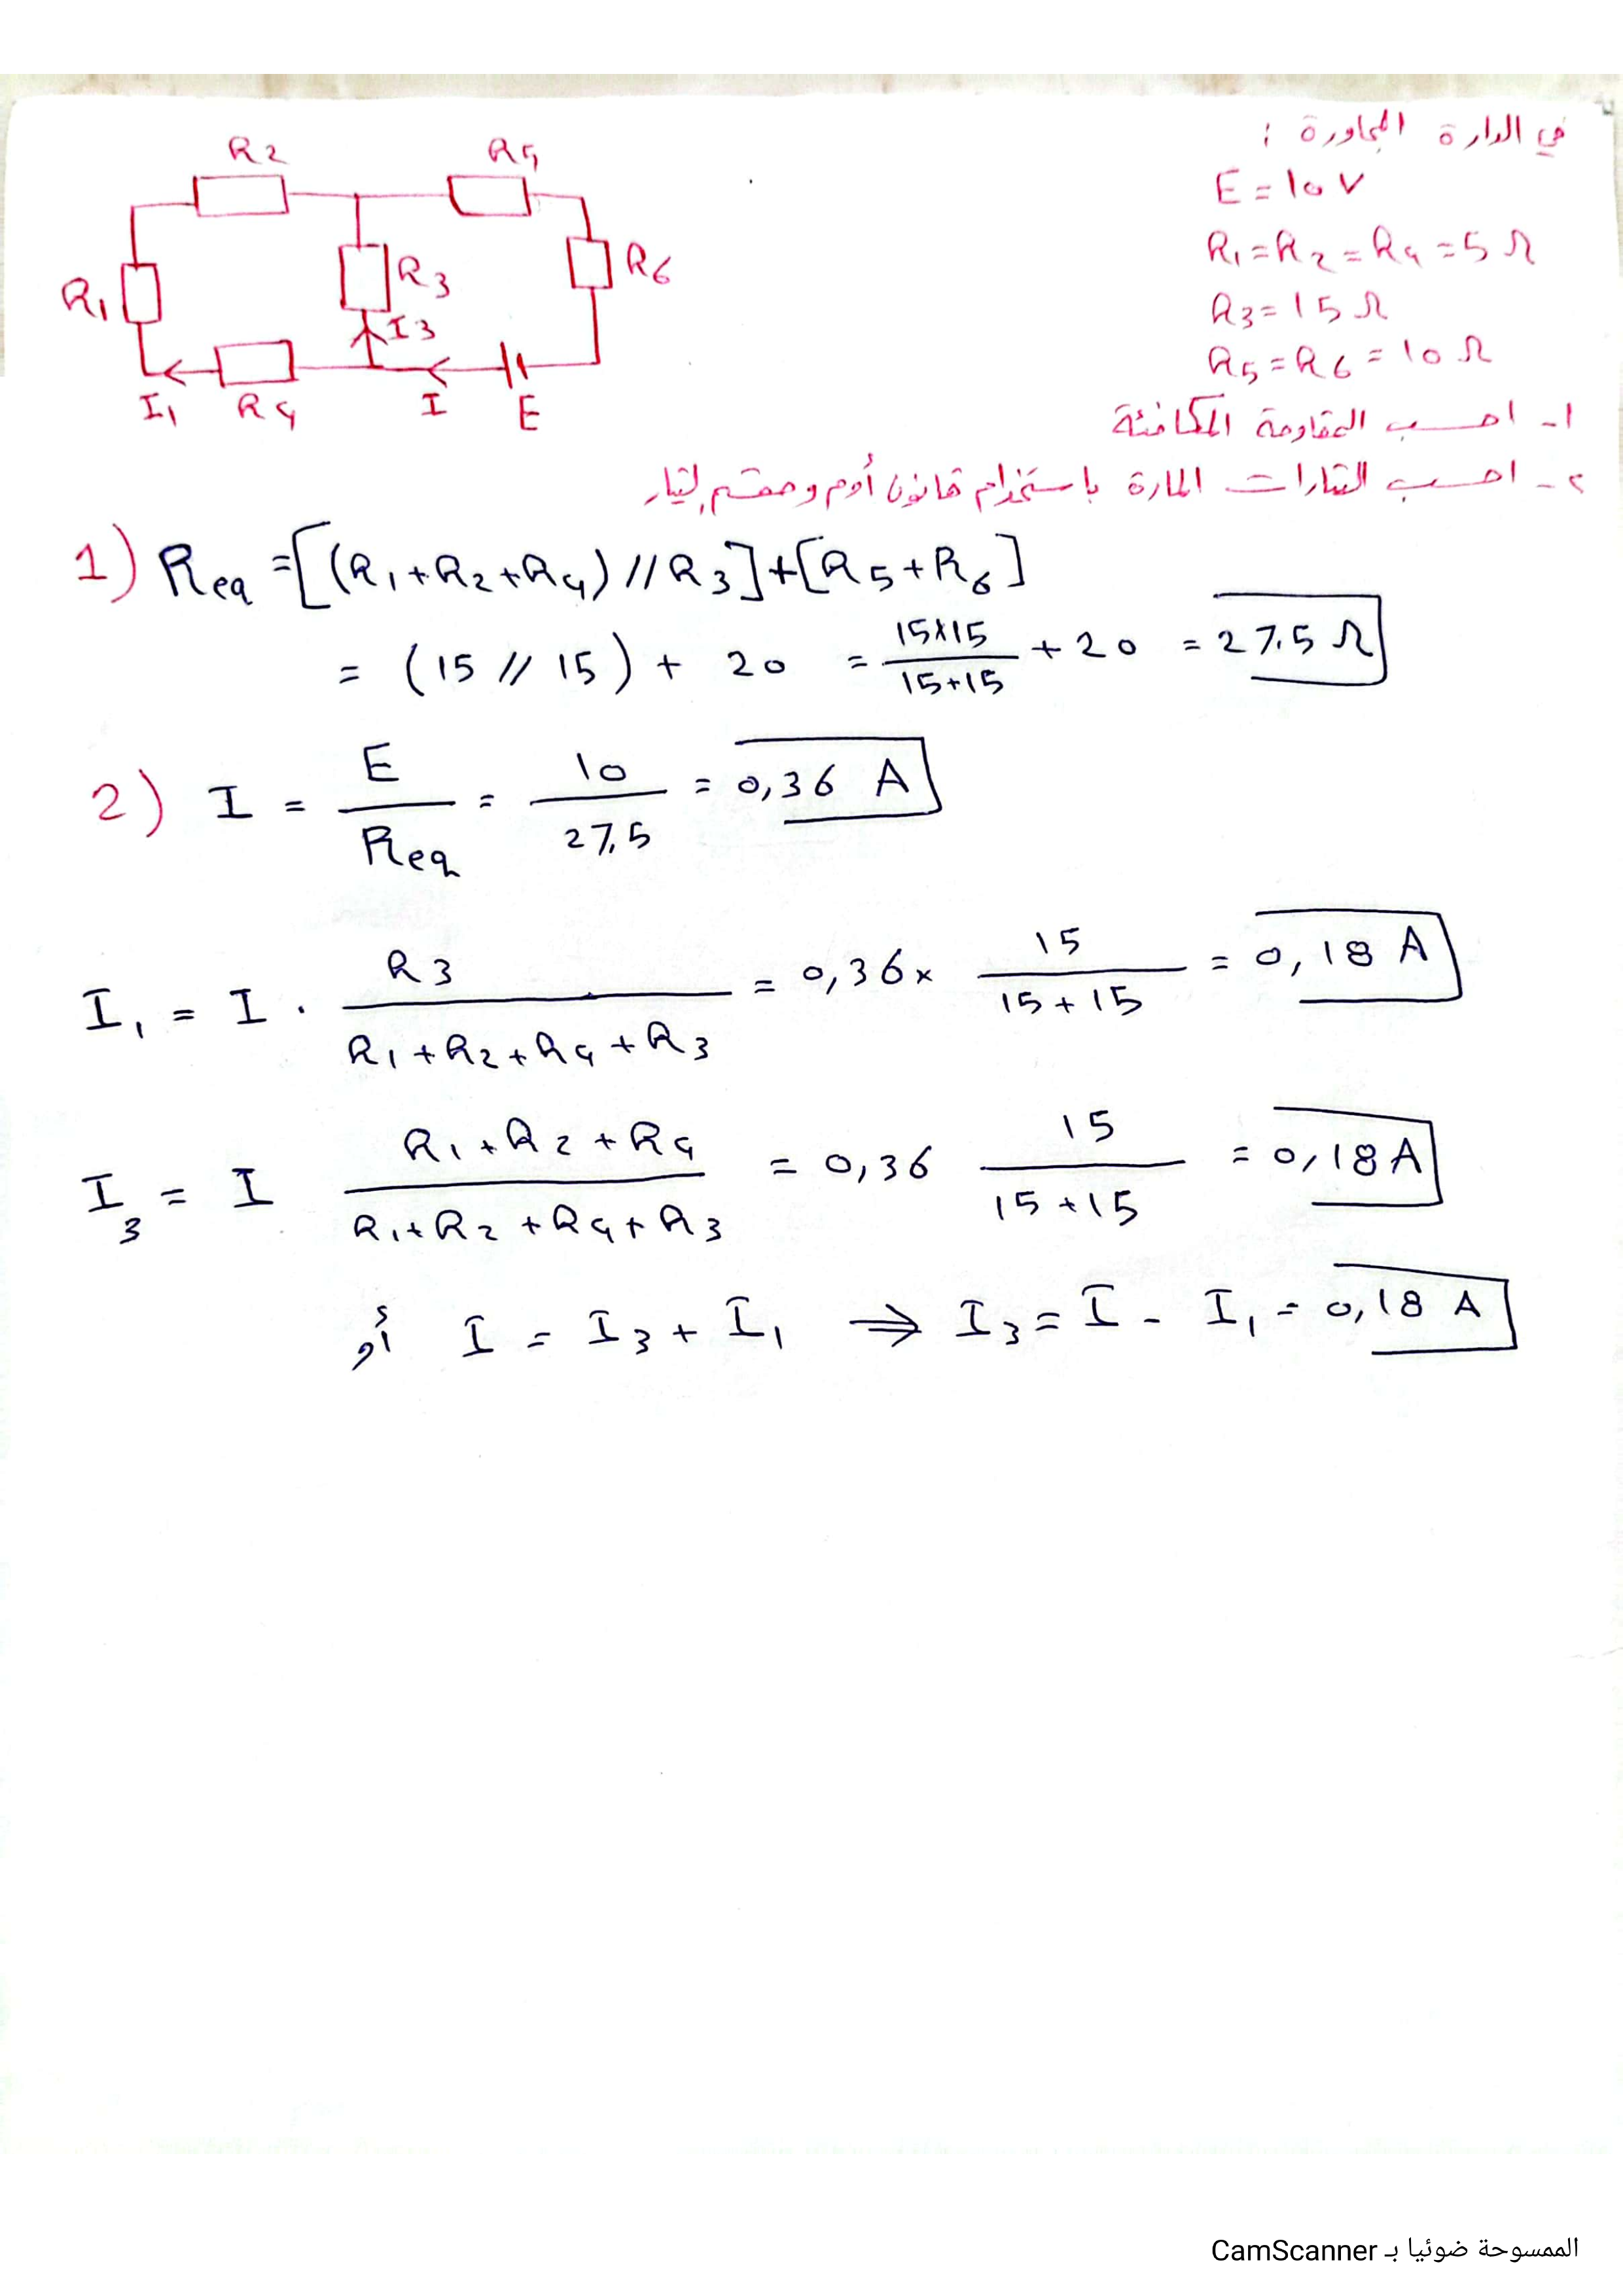 في الدارة المجاورة :
E = 10 V
R1 = R2 = R4 = 5 Ω
R3 = 15 Ω
R5 = R6 = 10 Ω
R2
R5
R1
R3
R6
I3
I1
R4
I
E
1- احسب المقاومة المكافئة
2- احسب التيارات المارة باستخدام قانون أوم ومقسم التيار
1) Req = [(R1+R2+R4) // R3] + [R5+R6]
= (15 // 15) + 20 = 15×15 / 15+15 + 20 = 27.5 Ω
2) I = E / Req = 10 / 27.5 = 0,36 A
I1 = I . R3 / R1+R2+R4+R3 = 0,36 × 15 / 15+15 = 0,18 A
I3 = I R1+R2+R4 / R1+R2+R4+R3 = 0,36 15 / 15+15 = 0,18 A
أو I = I3 + I1 ⇒ I3 = I - I1 = 0,18 A
الممسوحة ضوئيا بـ CamScanner